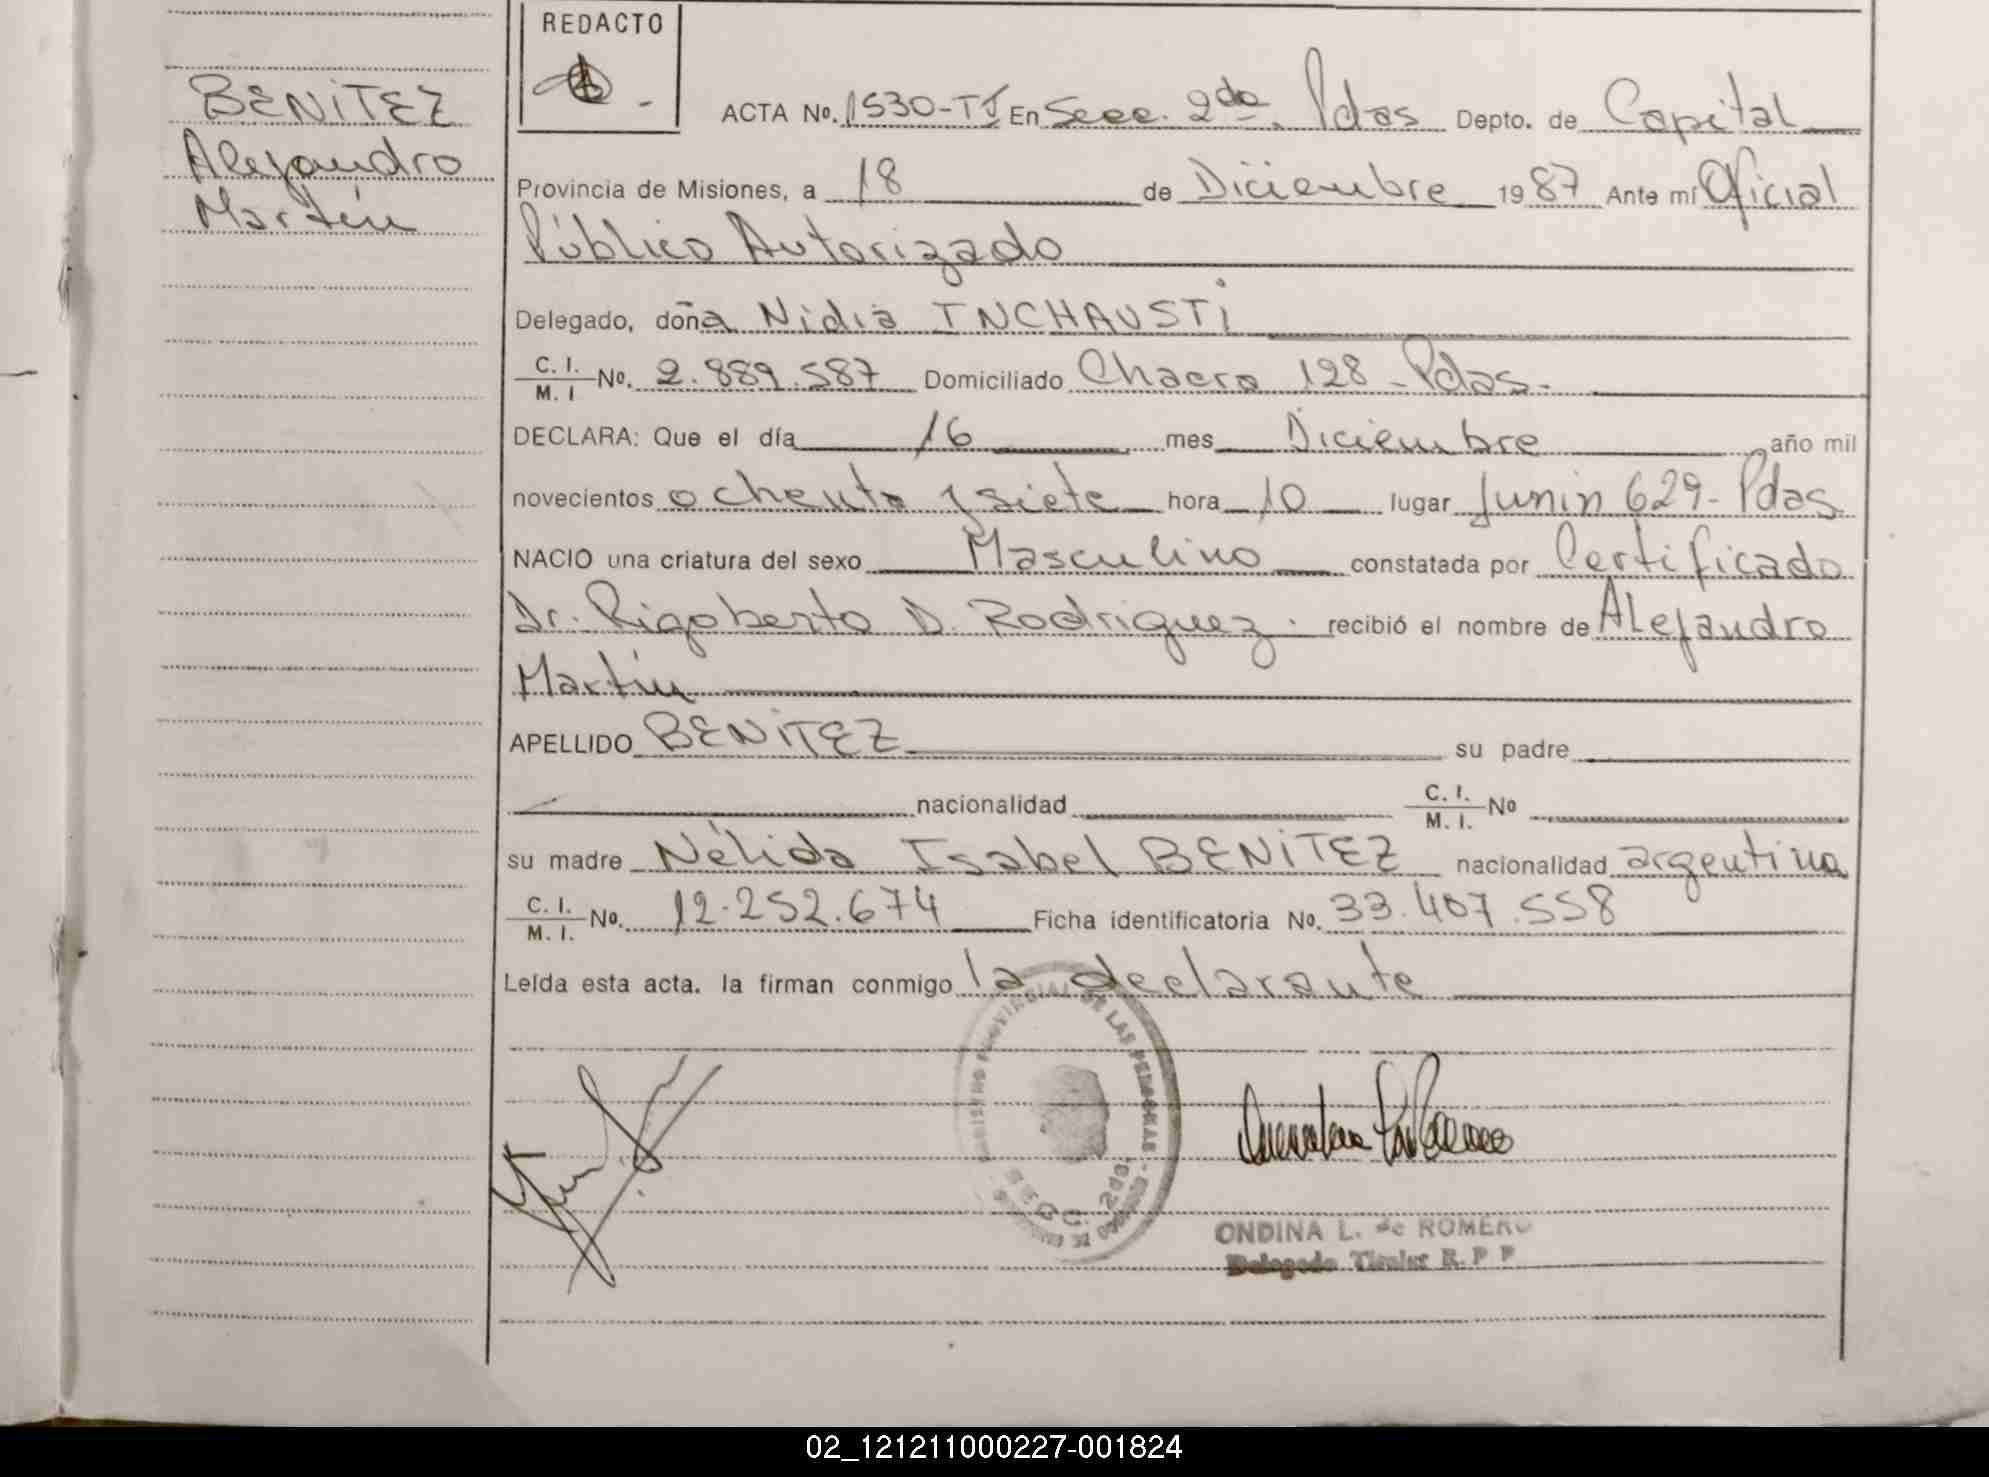 REDACTO
BENITEZ
Alejandro
Martín
ACTA No. 1530-TJ En Secc. 2da. Pdas Depto. de Capital
Provincia de Misiones, a 18 de Diciembre 1987 Ante mí Oficial
Público Autorizado
Delegado, doña Nidia INCHAUSTI
C. I. / M. I No. 2.889.587 Domiciliado Chacra 128 - Pdas.
DECLARA: Que el día 16 mes Diciembre año mil
novecientos ochenta y siete hora 10 lugar Junin 629 - Pdas
NACIO una criatura del sexo Masculino constatada por Certificado
Dr. Rigoberto D. Rodriguez. recibió el nombre de Alejandro
Martín
APELLIDO BENITEZ su padre
nacionalidad C. I. / M. I. No
su madre Nélida Isabel BENITEZ nacionalidad argentina
C. I. / M. I. No. 12.252.674 Ficha identificatoria No. 33.407.558
Leída esta acta. la firman conmigo la declarante
REGISTRO PROVINCIAL DE LAS PERSONAS
SECC. 2da.
ONDINA L. de ROMERO
Delegado Titular R. P P
02_121211000227-001824